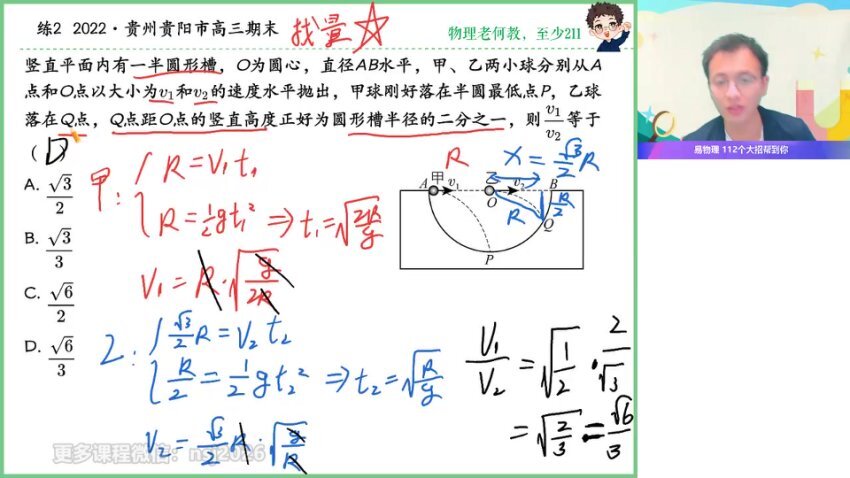 练2 2022·贵州贵阳市高三期末
找量☆
物理老何教，至少211
竖直平面内有一半圆形槽，O为圆心，直径AB水平，甲、乙两小球分别从A
点和O点以大小为v₁和v₂的速度水平抛出，甲球刚好落在半圆最低点P，乙球
落在Q点，Q点距O点的竖直高度正好为圆形槽半径的二分之一，则v₁/v₂等于
( D
A. √3/2
B. √3/3
C. √6/2
D. √6/3
甲:
R=V₁t₁
R=½gt₁² ⇒ t₁=√(2R/g)
V₁=R·√(g/2R)
乙:
√3/2 R=V₂t₂
R/2=½gt₂² ⇒ t₂=√(R/g)
V₂=√3/2 R·√(g/R)
R
x=√3/2 R
A 甲 v₁ 乙 v₂ B
O
R
R/2
Q
P
V₁/V₂=√(1/2)·2/√3
=√(2/3)=√6/3
易物理 112个大招帮到你
更多课程微信：nsj2026